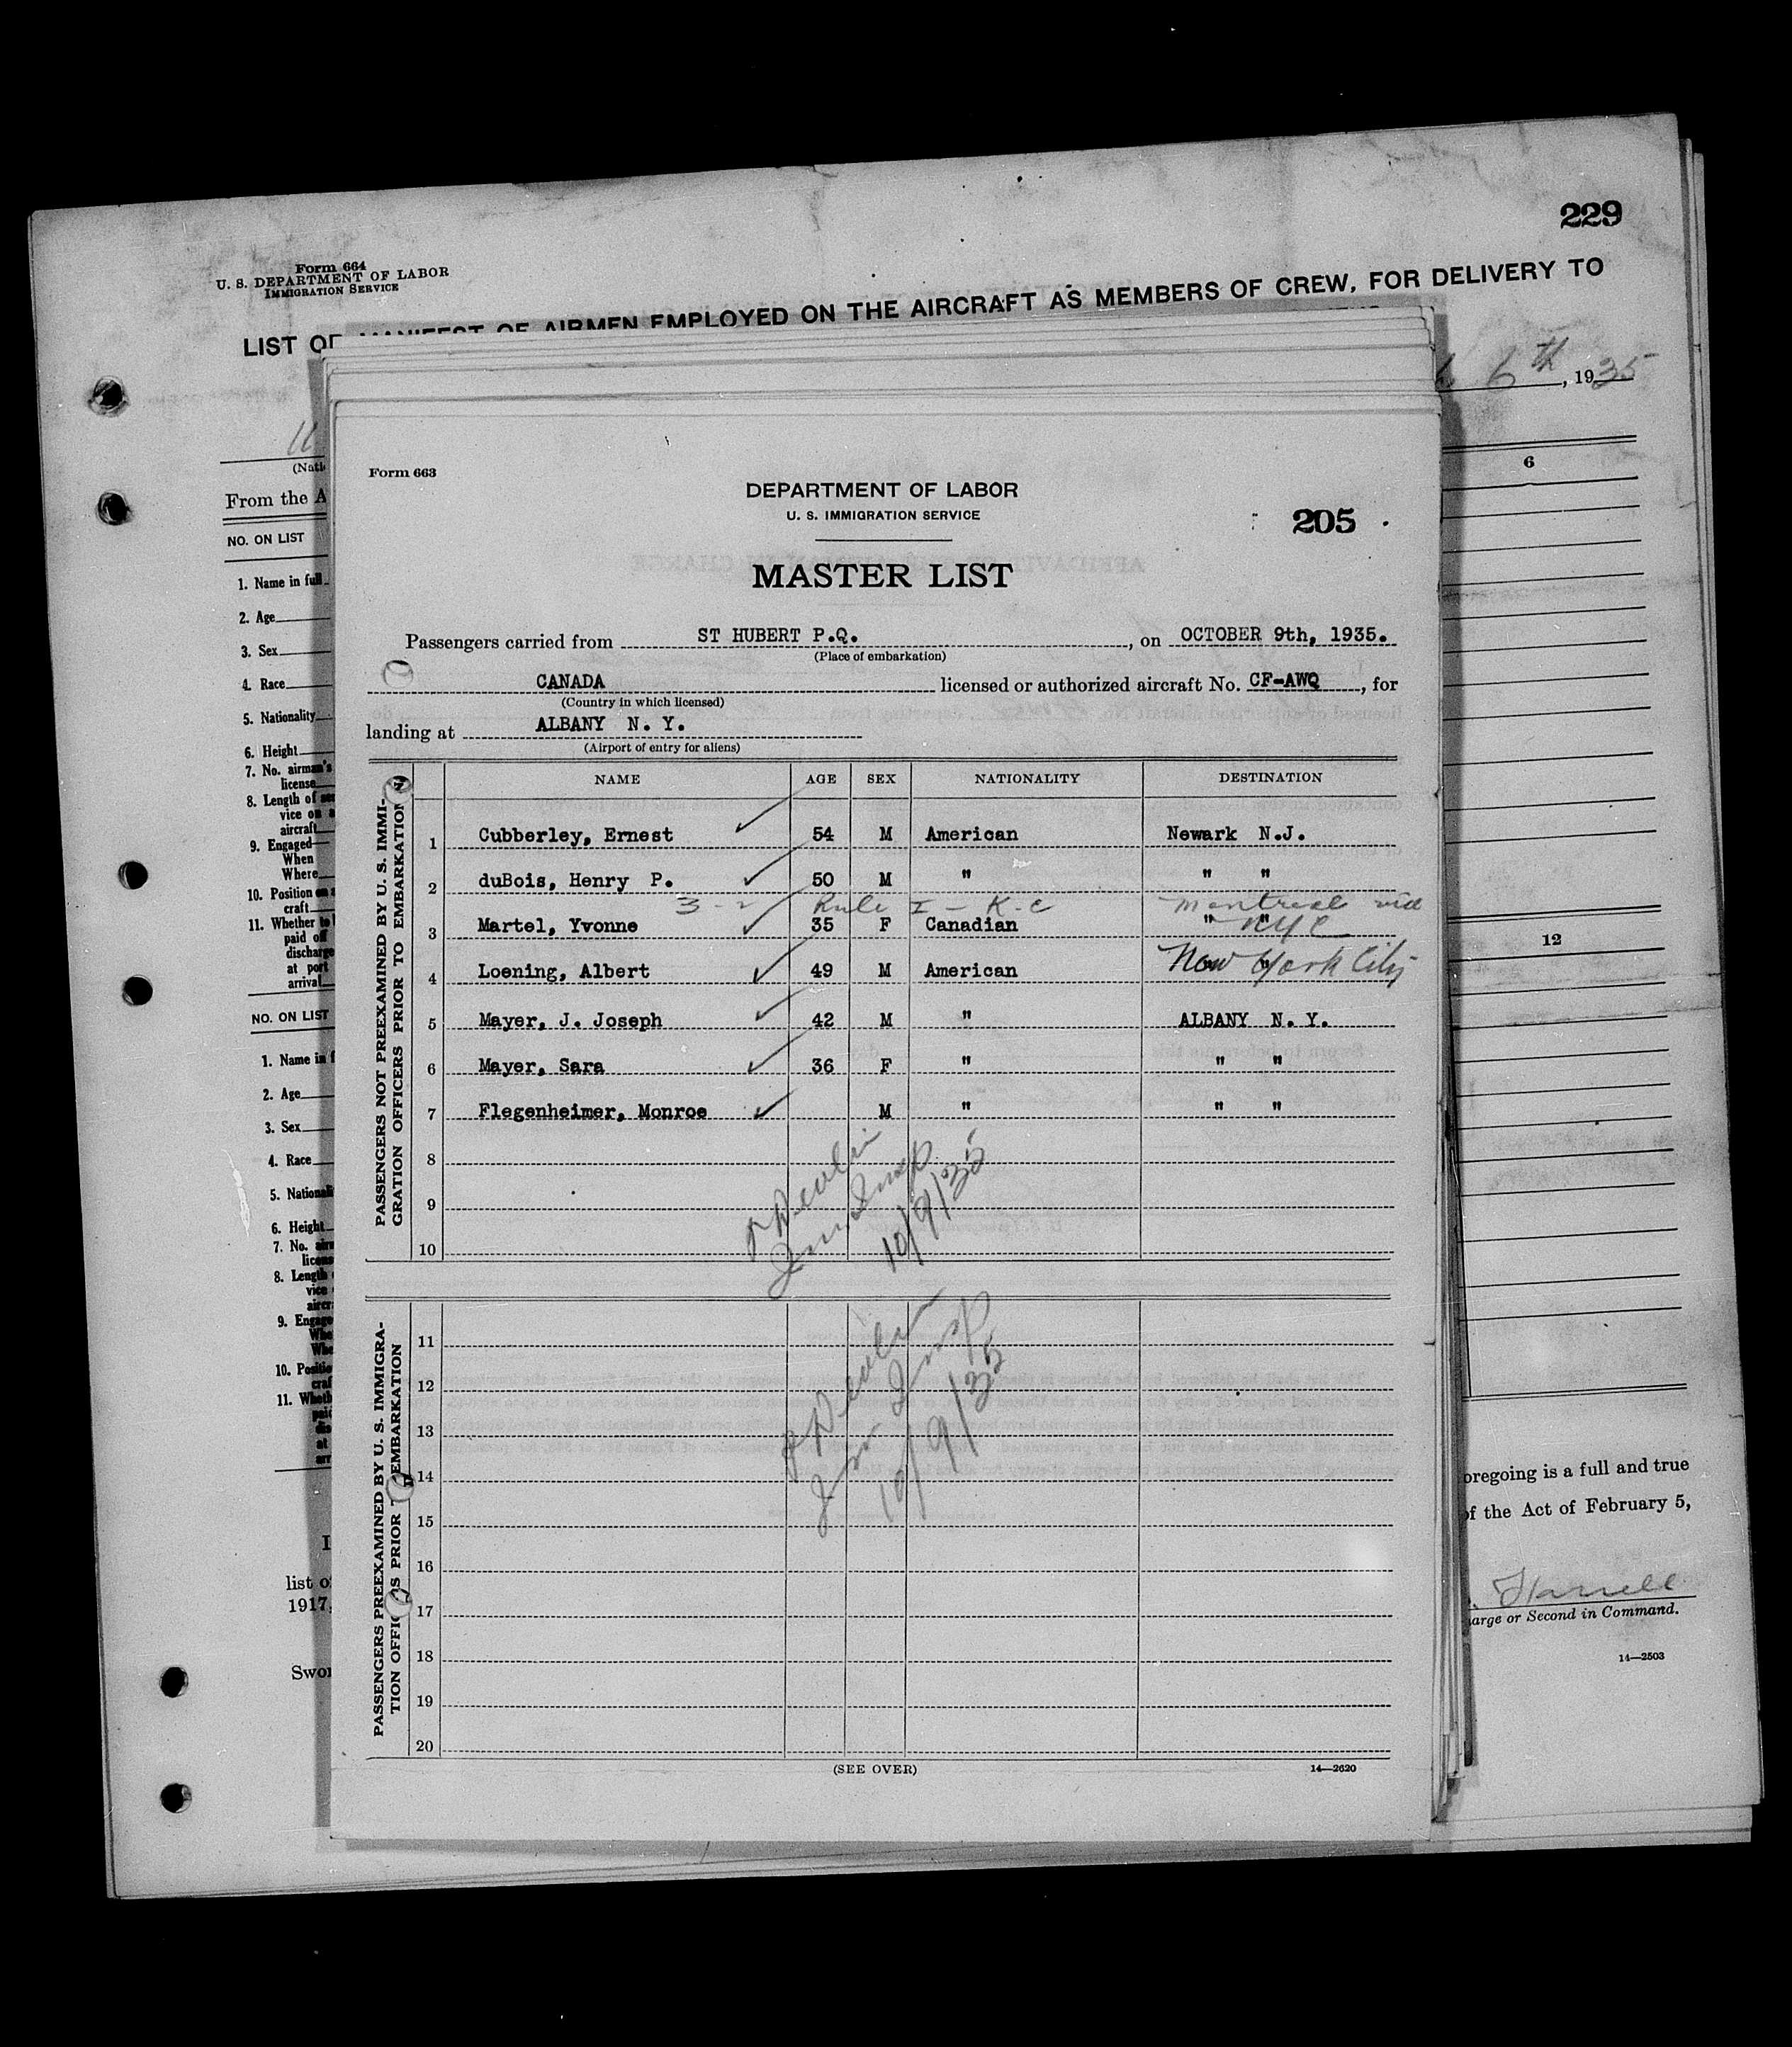 229
Form 664
U. S. DEPARTMENT OF LABOR
IMMIGRATION SERVICE
LIST OR MANIFEST OF AIRMEN EMPLOYED ON THE AIRCRAFT AS MEMBERS OF CREW, FOR DELIVERY TO
6th, 1935
(Nati
From the A
NO. ON LIST
6
1. Name in full
2. Age
3. Sex
4. Race
5. Nationality
6. Height
7. No. airman's
license
8. Length of ser
vice on a
aircraft
9. Engaged
When
Where
10. Position on a
craft
11. Whether to b
paid off
discharge
at port
arrival
12
NO. ON LIST
1. Name in f
2. Age
3. Sex
4. Race
5. Nationali
6. Height
7. No. airm
licens
8. Length
vice
aircr
9. Engage
Whe
Whe
10. Positio
craf
11. Wheth
paid
dis
at
arr
oregoing is a full and true
list o
of the Act of February 5,
1917,
Swor
Harrell
arge or Second in Command.
14—2503
Form 663
DEPARTMENT OF LABOR
U. S. IMMIGRATION SERVICE
205
MASTER LIST
Passengers carried from ST HUBERT P.Q., on OCTOBER 9th, 1935.
(Place of embarkation)
CANADA licensed or authorized aircraft No. CF-AWQ, for
(Country in which licensed)
landing at ALBANY N. Y.
(Airport of entry for aliens)
PASSENGERS NOT PREEXAMINED BY U. S. IMMI-
GRATION OFFICERS PRIOR TO EMBARKATION
NAME AGE SEX NATIONALITY DESTINATION
1 Cubberley, Ernest 54 M American Newark N.J.
2 duBois, Henry P. 50 M " " "
3-2 Rule I - K-C Montreal via
3 Martel, Yvonne 35 F Canadian " " NYC
4 Loening, Albert 49 M American " New York City
5 Mayer, J. Joseph 42 M " ALBANY N. Y.
6 Mayer, Sara 36 F " " "
7 Flegenheimer, Monroe M " " "
8
9
10
Devlin
Imm Insp
10/9/35
PASSENGERS PREEXAMINED BY U. S. IMMIGRA-
TION OFFICERS PRIOR TO EMBARKATION
11
12
13
14
15
16
17
18
19
20
Devlin
Imm Insp
10/9/35
(SEE OVER)
14—2620